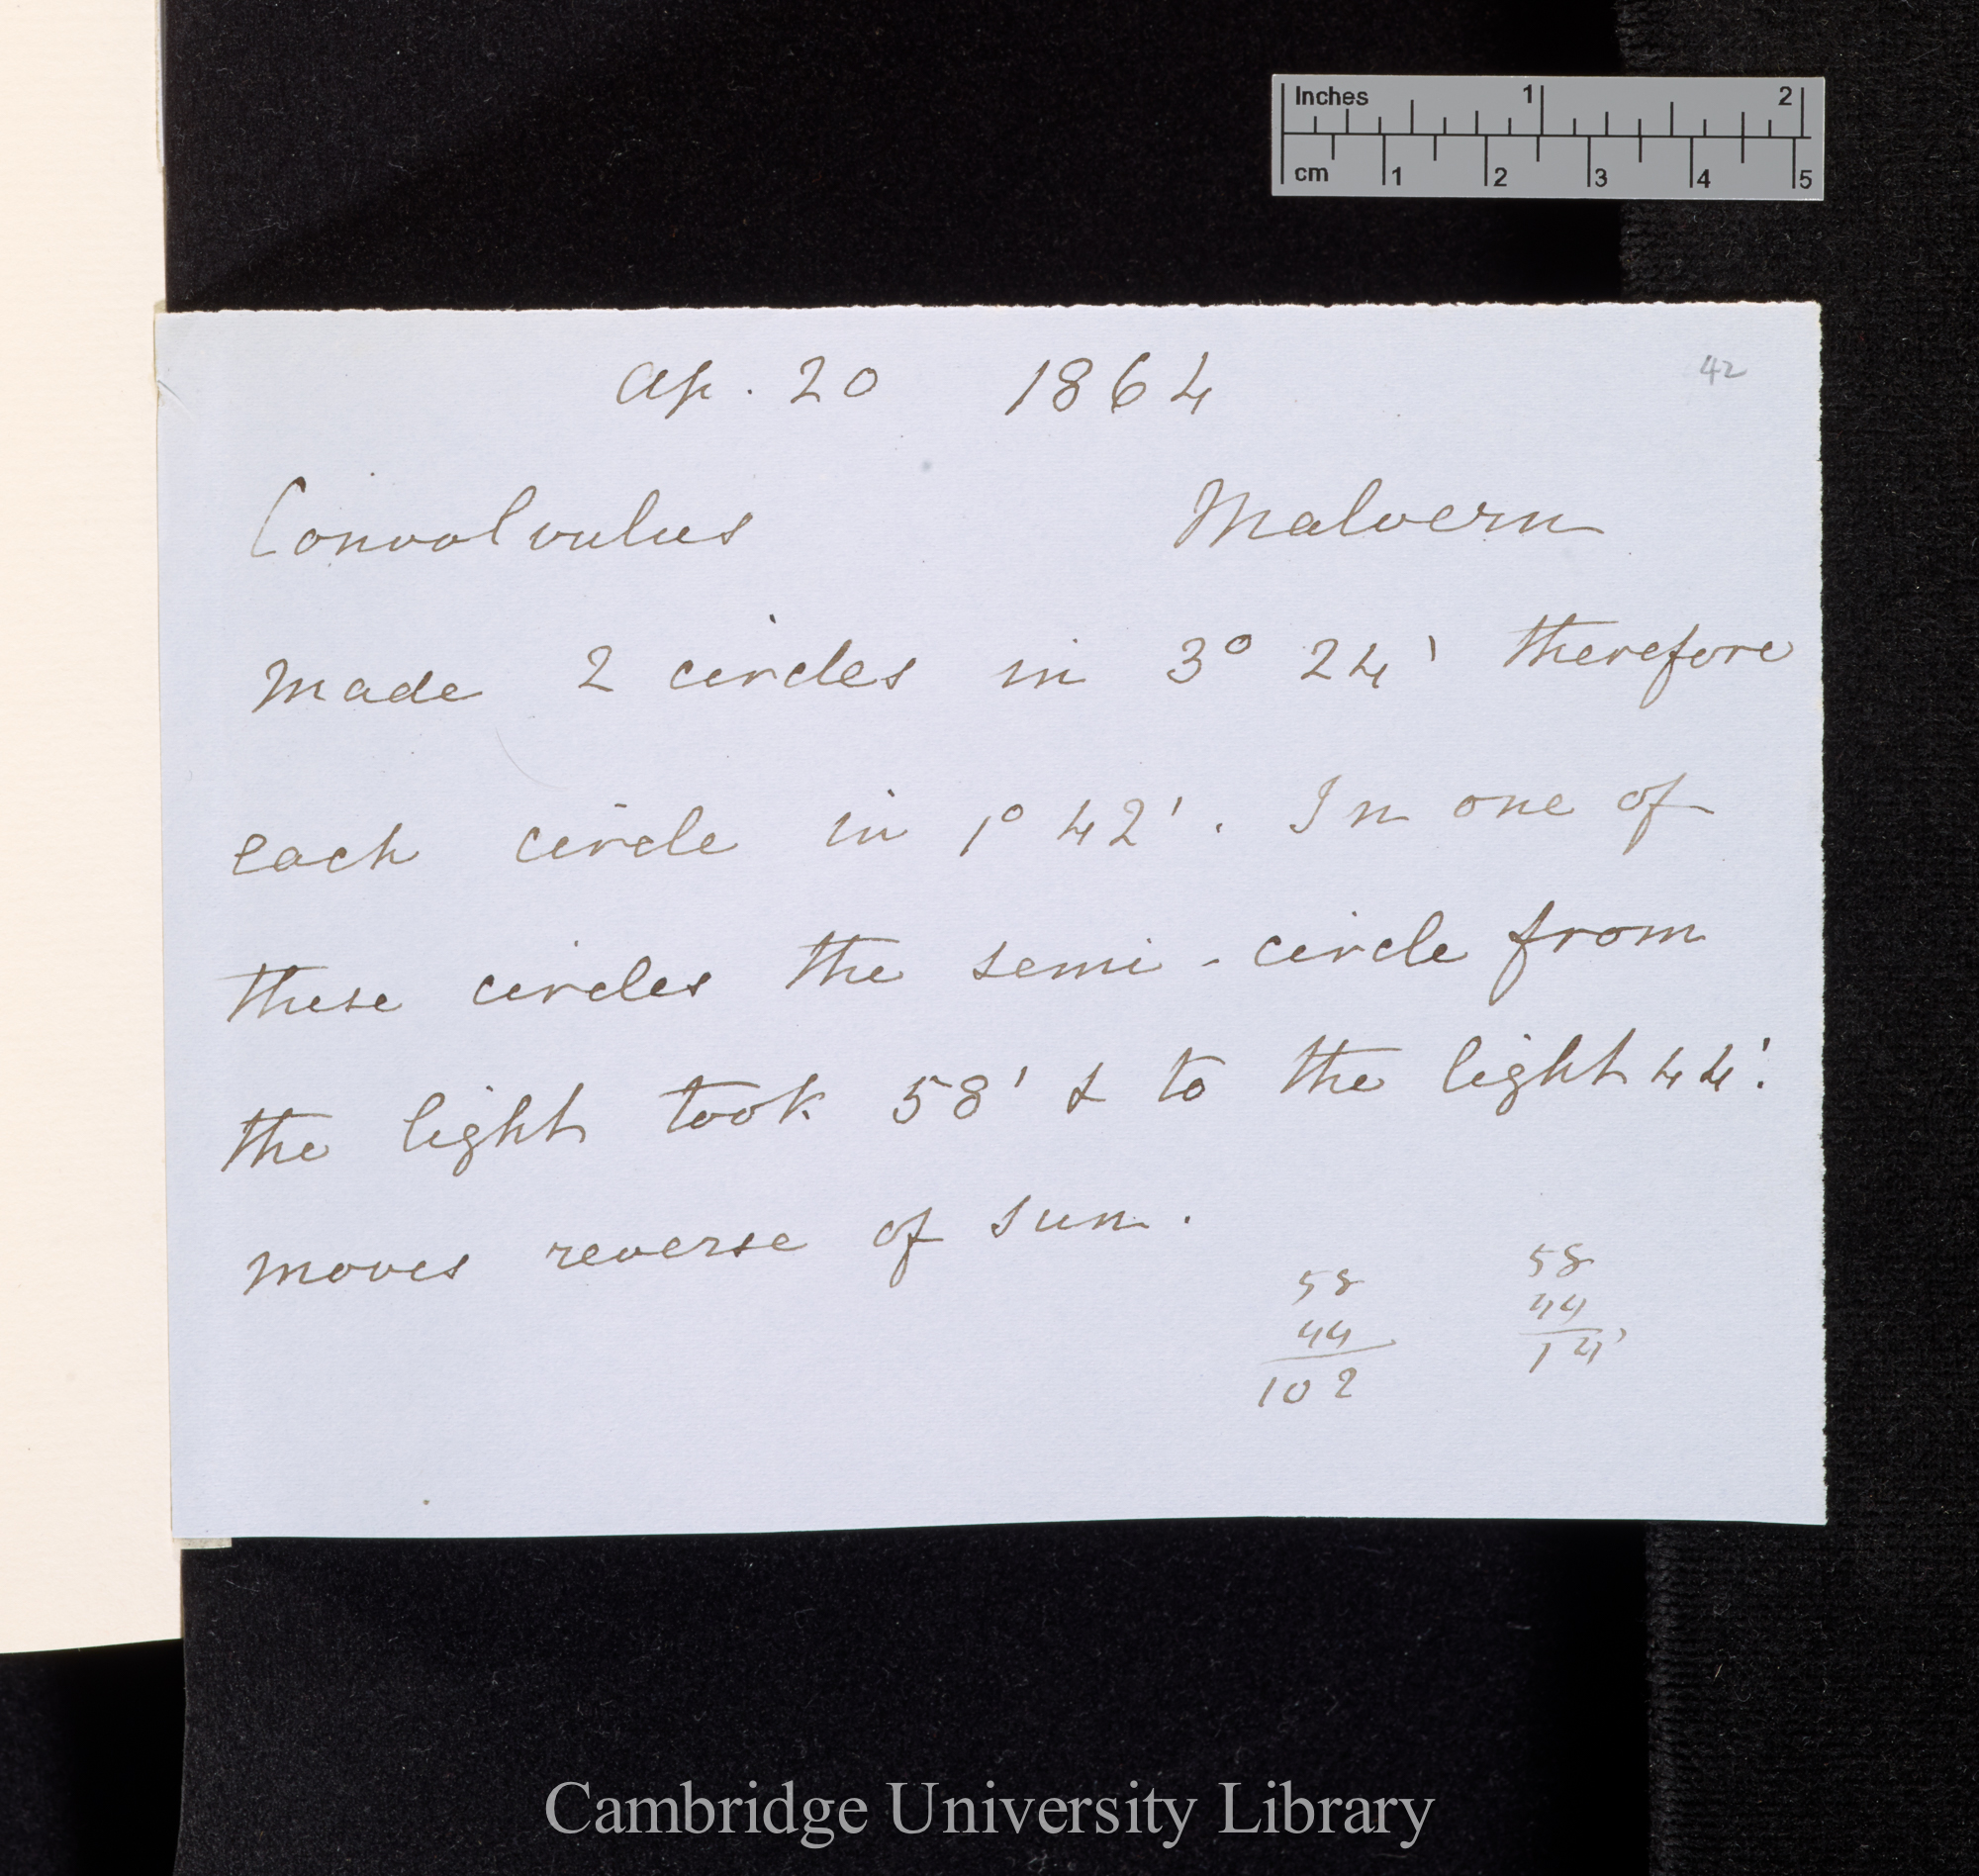 Inches 1 2
cm 1 2 3 4 5
Ap. 20 1864
42
Convolvulus Malvern
Made 2 circles in 3° 24' therefore
each circle in 1° 42'. In one of
these circles the semi-circle from
the light took 58' & to the light 44'.
moves reverse of sun.
58 58
44 44
102 14'
Cambridge University Library